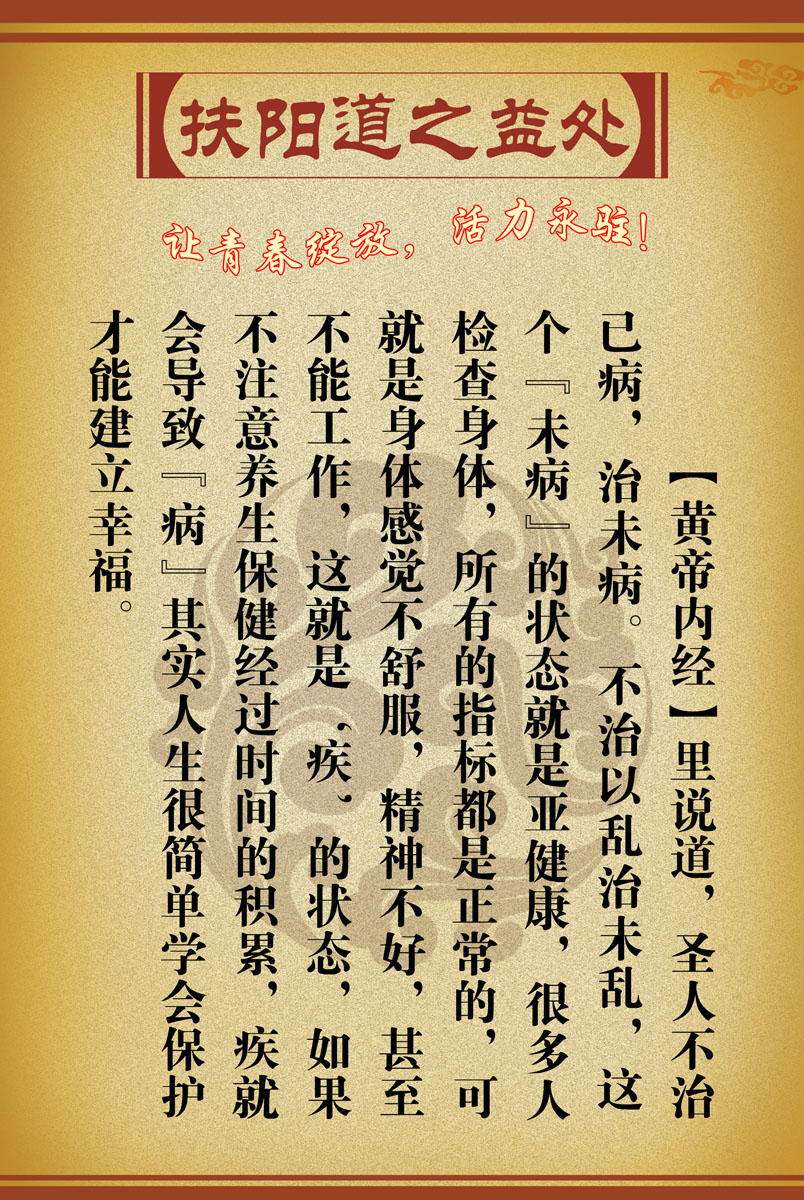 扶阳道之益处
让青春绽放，活力永驻！
【黄帝内经】里说道，圣人不治
已病，治未病。不治以乱治未乱，这
个『未病』的状态就是亚健康，很多人
检查身体，所有的指标都是正常的，可
就是身体感觉不舒服，精神不好，甚至
不能工作，这就是‘疾’的状态，如果
不注意养生保健经过时间的积累，疾就
会导致『病』其实人生很简单学会保护
才能建立幸福。